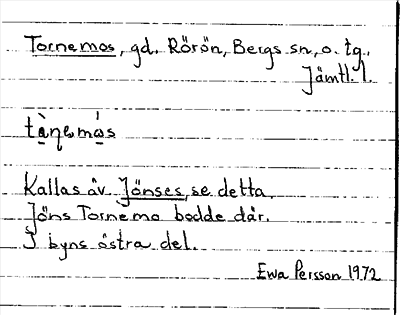 Tornemos, gd. Rörön, Bergs sn, o. tg.,
Jämtl. l.
tὰɳemás
Kallas äv. Jönses, se detta.
Jöns Tornemo bodde där.
I byns östra del.
Ewa Persson 1972